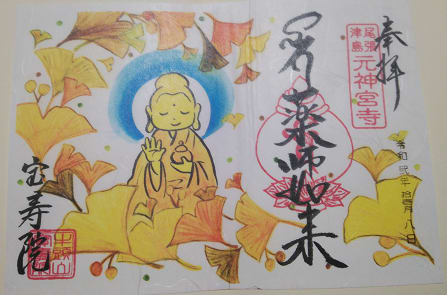 奉拝
尾張
津島
元神宮寺
薬師如来
令和弐年拾壱月八日
宝寿院